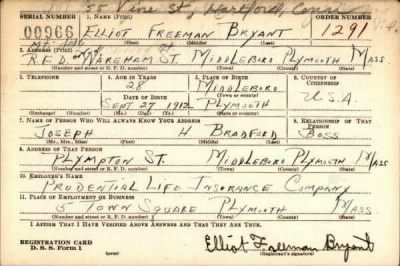 55 Vine St., Hartford, Conn
SERIAL NUMBER 1. NAME (Print) ORDER NUMBER
00966 ELLIOT FREEMAN BRYANT 1291
(First) (Middle) (Last)
2. ADDRESS (Print)
R.F.D. WAREHAM ST. MIDDLEBORO PLYMOUTH MASS.
(Number and street or R. F. D. number) (Town) (County) (State)
3. TELEPHONE 4. AGE IN YEARS 5. PLACE OF BIRTH 6. COUNTRY OF CITIZENSHIP
28 MIDDLEBORO
(Town or county)
DATE OF BIRTH
SEPT 27 1912 PLYMOUTH U.S.A.
(Exchange) (Number) (Mo.) (Day) (Yr.) (State or country)
7. NAME OF PERSON WHO WILL ALWAYS KNOW YOUR ADDRESS 8. RELATIONSHIP OF THAT PERSON
JOSEPH H BRADFORD BOSS
(Mr., Mrs., Miss) (First) (Middle) (Last)
9. ADDRESS OF THAT PERSON
PLYMPTON ST. MIDDLEBORO PLYMOUTH MASS
(Number and street or R. F. D. number) (Town) (County) (State)
10. EMPLOYER'S NAME
PRUDENTIAL LIFE INSURANCE COMPANY
11. PLACE OF EMPLOYMENT OR BUSINESS
5 TOWN SQUARE PLYMOUTH MASS
(Number and street or R. F. D. number) (Town) (County) (State)
I AFFIRM THAT I HAVE VERIFIED ABOVE ANSWERS AND THAT THEY ARE TRUE.
REGISTRATION CARD
D. S. S. Form 1
Elliot Freeman Bryant
(Registrant's signature)